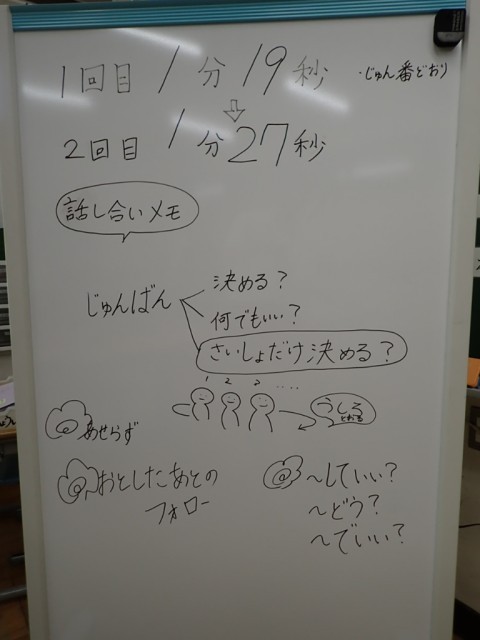 1回目 1分19秒 ・じゅん番どおり
⇩
2回目 1分27秒
話し合いメモ
じゅんばん
決める？
何でもいい？
さいしょだけ決める？
1 2 3 ‥‥
うしろ
とおる
あせらず
おとしたあとの
フォロー
～していい？
～どう？
～でいい？